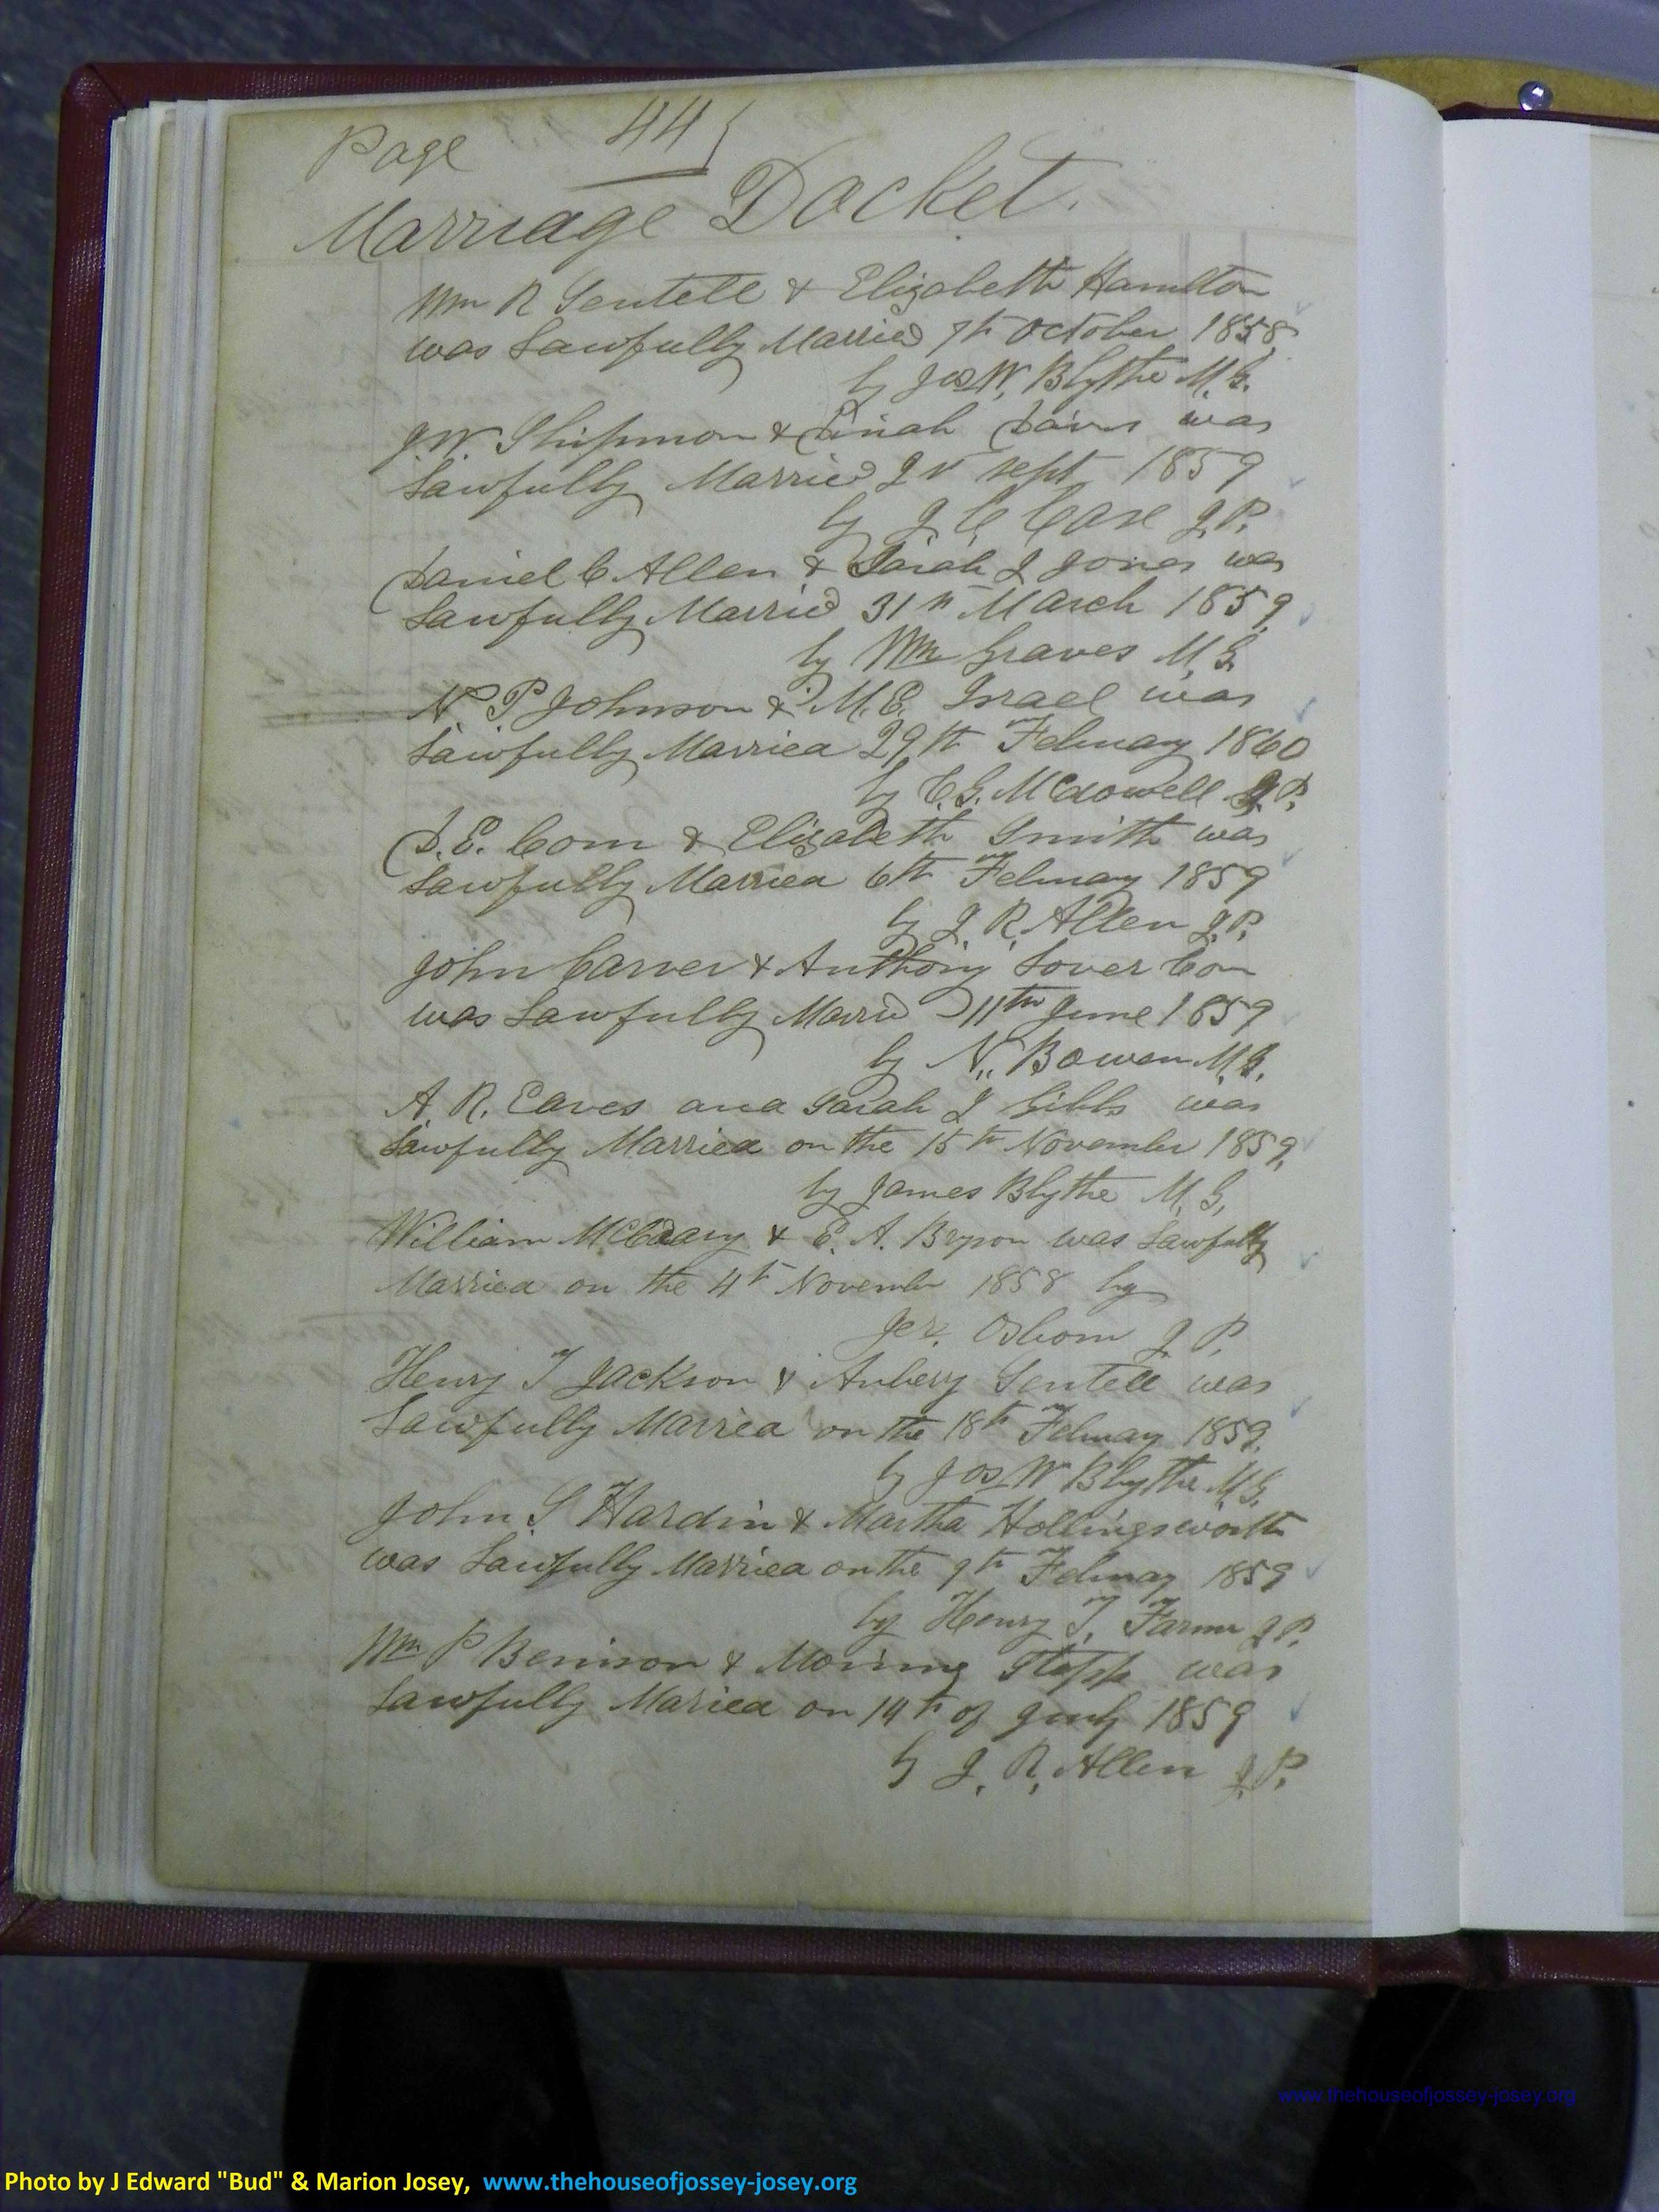 Page 44
Marriage Docket.
Wm R Sentell & Elizabeth Hamilton
was Lawfully Married 7th October 1858
by Jas W. Blythe M.G.
J.W. Shipmon & Dinah Davis was
Lawfully Married sept 1859
by J. C. Case J.P.
Daniel C Allen & Sarah J Jones was
Lawfully Married 31st March 1859
by Wm Graves M.G.
N. P. Johnson & M.E. Israel was
Lawfully Married 29th February 1860
by C.G. McDowell J.P.
D.E. Corn & Elizabeth Smith was
Lawfully Married 6th February 1859
by J. R. Allen J.P.
John Carver & Anthony Lover Corn
was Lawfully Married 11th June 1859
by N. Bowen M.G.
A. R. Eaves and Sarah J Gibbs was
Lawfully Married on the 15th November 1859
by James Blythe M.G.
William & E. A. Bryson was Lawfully
Married on the 4th November 1858 by
Jer. Osborn J.P.
Henry T Jackson & Anbery Sentell was
Lawfully Married on the 18th February 1859
by Jas W Blythe M.G.
John S Hardin & Martha Hollingsworth
was Lawfully Married on the 9th February 1859
by Henry T. Farmer J.P.
Wm P Benison & Morning Stepp was
Lawfully Maried on 14th of July 1859
by J. R. Allen J.P.
www.thehouseofjossey-josey.org
Photo by J Edward "Bud" & Marion Josey, www.thehouseofjossey-josey.org